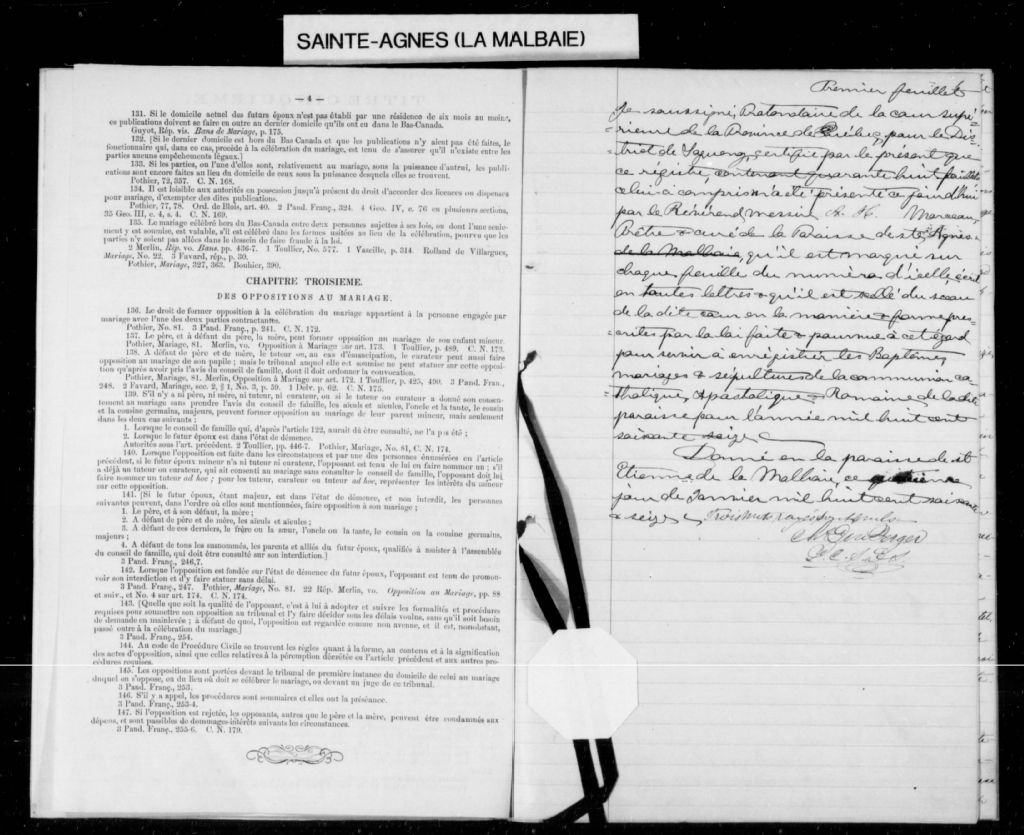 SAINTE-AGNES (LA MALBAIE)
— 4 —
131. Si le domicile actuel des futurs époux n'est pas établi par une résidence de six mois au moins,
ces publications doivent se faire en outre au dernier domicile qu'ils ont eu dans le Bas-Canada.
Guyot, Rép. vis. Bans de Mariage, p. 175.
132. [Si le dernier domicile est hors du Bas Canada et que les publications n'y aient pas été faites, le
fonctionnaire qui, dans ce cas, procède à la célébration du mariage, est tenu de s'assurer qu'il n'existe entre les
parties aucuns empêchements légaux.]
133. Si les parties, ou l'une d'elles sont, relativement au mariage, sous la puissance d'autrui, les publi-
cations sont encore faites au lieu du domicile de ceux sous la puissance desquels elles se trouvent.
Pothier, 72, 357. C. N. 168.
134. Il est loisible aux autorités en possession jusqu'à présent du droit d'accorder des licences ou dispenses
pour mariage, d'exempter des dites publications.
Pothier, 77, 78. Ord. de Blois, art. 40. 2 Pand. Franç., 324. 4 Geo. IV, c. 76 en plusieurs sections,
35 Geo. III, c. 4, s. 4. C. N. 169.
135. Le mariage célébré hors du Bas-Canada entre deux personnes sujettes à ses lois, ou dont l'une seule-
ment y est soumise, est valable, s'il est célébré dans les formes usitées au lieu de la célébration, pourvu que les
parties n'y soient pas allées dans le dessein de faire fraude à la loi.
2 Merlin, Rép. vo. Bans, pp. 436-7. 1 Toullier, No. 577. 1 Vazeille, p. 314. Rolland de Villargues,
Mariage, No. 22. 3 Favard, rép., p. 30.
Pothier, Mariage, 327, 363. Bouhier, 390.
CHAPITRE TROISIEME.
DES OPPOSITIONS AU MARIAGE.
136. Le droit de former opposition à la célébration du mariage appartient à la personne engagée par
mariage avec l'une des deux parties contractantes.
Pothier, No. 81. 3 Pand. Franç., p. 241. C. N. 172.
137. Le père, et à défaut du père, la mère, peut former opposition au mariage de son enfant mineur.
Pothier, Mariage, 81. Merlin, vo. Opposition à Mariage sur art. 173. 1 Toullier, p. 489. C. N. 173.
138. A défaut de père et de mère, le tuteur ou, au cas d'émancipation, le curateur peut aussi faire
opposition au mariage de son pupille; mais le tribunal auquel elle est soumise ne peut statuer sur cette opposi-
tion qu'après avoir pris l'avis du conseil de famille, dont il doit ordonner la convocation.
Pothier, Mariage, 81. Merlin, Opposition à Mariage sur art. 172. 1 Toullier, p. 425, 490. 3 Pand. Fran.,
248. 2 Favard, Mariage, sec. 2, § 1, No. 3, p. 59. 1 Delv. p. 62. C. N. 175.
139. S'il n'y a ni père, ni mère, ni tuteur, ni curateur, ou si le tuteur ou curateur a donné son consen-
tement au mariage sans prendre l'avis du conseil de famille, les aïeuls et aïeules, l'oncle et la tante, le cousin
et la cousine germains, majeurs, peuvent former opposition au mariage de leur parent mineur, mais seulement
dans les deux cas suivants:
1. Lorsque le conseil de famille qui, d'après l'article 122, aurait dû être consulté, ne l'a pas été;
2. Lorsque le futur époux est dans l'état de démence.
Autorités sous l'art. précédent. 2 Toullier, pp. 446-7. Pothier, Mariage, No. 81, C. N. 174.
140. Lorsque l'opposition est faite dans les circonstances et par une des personnes énumérées en l'article
précédent, si le futur époux mineur n'a ni tuteur ni curateur, l'opposant est tenu de lui en faire nommer un; s'il
a déjà un tuteur ou curateur, qui ait consenti au mariage sans consulter le conseil de famille, l'opposant doit lui
faire nommer un tuteur ad hoc; pour les tuteur, curateur ou tuteur ad hoc, représenter les intérêts du mineur
sur cette opposition.
141. [Si le futur époux, étant majeur, est dans l'état de démence, et non interdit, les personnes
suivantes peuvent, dans l'ordre où elles sont mentionnées, faire opposition à son mariage:
1. Le père, et à son défaut, la mère;
2. A défaut de père et de mère, les aïeuls et aïeules;
3. A défaut de ces derniers, le frère ou la sœur, l'oncle ou la tante, le cousin ou la cousine germains,
majeurs;
4. A défaut de tous les susnommés, les parents et alliés du futur époux, qualifiés à assister à l'assemblée
du conseil de famille, qui doit être consulté sur son interdiction.]
3 Pand. Franç., 246,7.
142. Lorsque l'opposition est fondée sur l'état de démence du futur époux, l'opposant est tenu de promou-
voir son interdiction et d'y faire statuer sans délai.
3 Pand. Franç., 247. Pothier, Mariage, No. 81. 22 Rép. Merlin, vo. Opposition au Mariage, pp. 88
et suiv., et No. 4 sur art. 174. C. N. 174.
143. [Quelle que soit la qualité de l'opposant, c'est à lui à adopter et suivre les formalités et procédures
requises pour soumettre son opposition au tribunal et l'y faire décider sous les délais voulus, sans qu'il soit besoin
de demande en mainlevée; à défaut de quoi, l'opposition est regardée comme non avenue, et il est, nonobstant,
passé outre à la célébration du mariage.]
3 Pand. Franç., 254.
144. Au code de Procédure Civile se trouvent les règles quant à la forme, au contenu et à la signification
des actes d'opposition, ainsi que celles relatives à la péremption décrétée en l'article précédent et aux autres pro-
cédures requises.
145. Les oppositions sont portées devant le tribunal de première instance du domicile de celui au mariage
duquel on s'oppose, ou du lieu où doit se célébrer le mariage, ou devant un juge de ce tribunal.
3 Pand. Franç., 253.
146. S'il y a appel, les procédures sont sommaires et elles ont la préséance.
3 Pand. Franç., 253-4.
147. Si l'opposition est rejetée, les opposants, autres que le père et la mère, peuvent être condamnés aux
dépens, et sont passibles de dommages-intérêts suivants les circonstances.
3 Pand. Franç., 255-6. C. N. 179.
Premier feuillet
Je soussigné, Protonotaire de la cour supé-
rieure de la Province de Québec, pour le Dis-
trict de Saguenay, certifie par le présent que
ce régistre, contenant quarante huit feuillets
celui-ci compris m'a été présenté ce jourd'hui
par le Révérend messire A. H. Marceau
Prêtre & curé de la Paroisse de ste Agnès
de la Malbaie, qu'il est marqué sur
chaque feuillet du numéro d'icelle, écrit
en toutes lettres & qu'il est scellé du sceau
de la dite cour en la manière & forme pres-
crites par la loi faite & pourvue à cet égard
pour servir à enrégistrer les Baptêmes,
mariages & sépultures de la communion ca-
tholique, Apostolique & Romaine de la dite
paroisse pour l'année mil huit cent
soixante seize
Donné en la paroisse de st
Etienne de la Malbaie, ce
jour de Janvier mil huit cent soixante
& seize Trois mots rayés nuls
P. C. S.